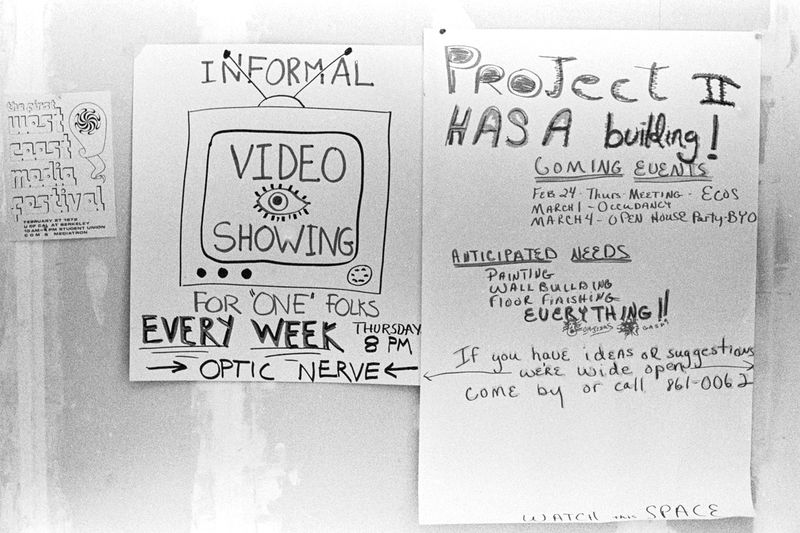 the first
west
coast
media
festival
FEBRUARY 27 1972
U OF CAL AT BERKELEY
10AM-5PM STUDENT UNION
COM & MEDIATRON
INFORMAL
VIDEO
SHOWING
FOR "ONE" FOLKS
EVERY WEEK THURSDAY
8 PM
→ OPTIC NERVE ←
PROJECT II
HAS A building!
COMING EVENTS
FEB 24 - Thurs - MEETING - ECOS
MARCH 1 - OCCUPANCY
MARCH 4 - OPEN HOUSE Party - BYO
ANTICIPATED NEEDS
PAINTING
WALL BUILDING
FLOOR FINISHING
EVERYTHING!!
If you have ideas or suggestions
we're wide open
come by or call 861-0062
WATCH THIS SPACE